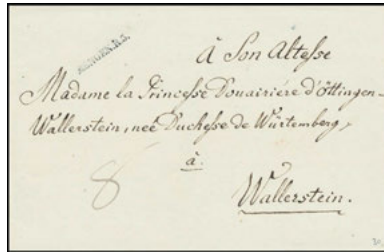 BERGEN.R.3.
à Son Altesse
Madame la Princesse Douairière d'Öttingen-
Wallerstein, neé Duchesse de Würtemberg,
à
8
Wallerstein.